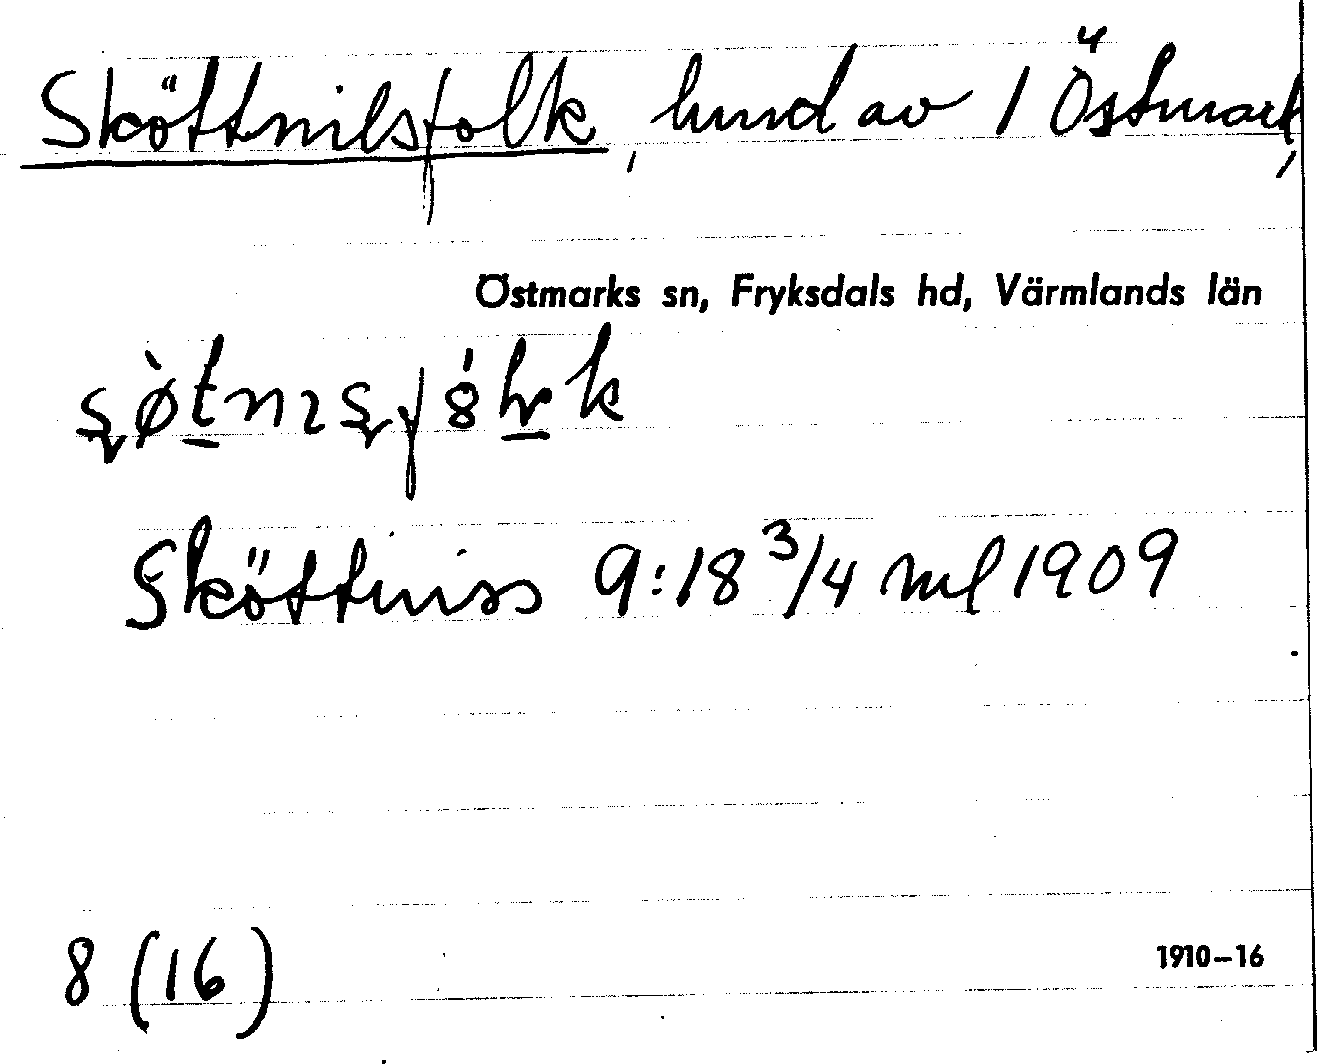 Sköttnilsfolk, hmd av 1⁴ Östmark,
Östmarks sn, Fryksdals hd, Värmlands län
Sköttniss 9:18 3/4 ml 1909
8 (16)
1910–16